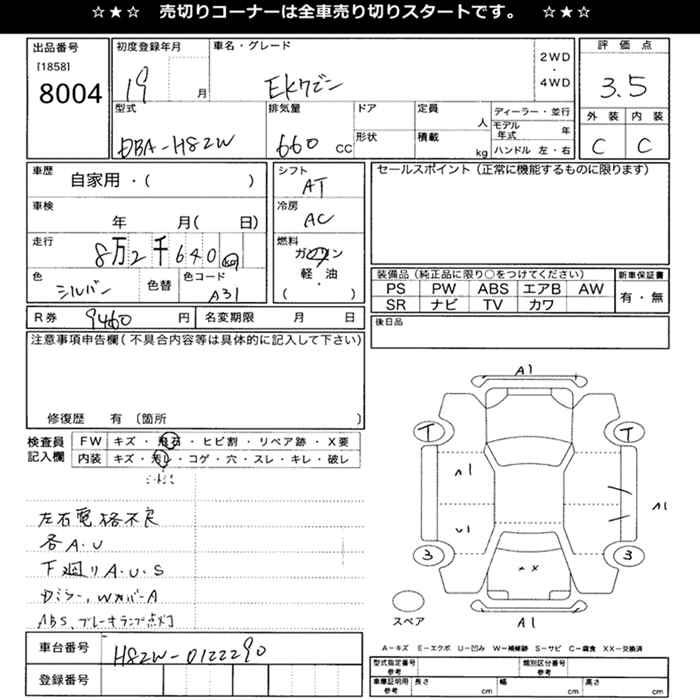 ☆★☆ 売切りコーナーは全車売り切りスタートです。 ☆★☆
出品番号
[1858]
8004
初度登録年月
19 月
車名・グレード
EKワゴン
2WD
・
4WD
評価点
3.5
外装 内装
C C
型式
DBA-H82W
排気量
660 CC
ドア
形状
定員
人
積載
kg
ディーラー・並行
モデル年式 年
ハンドル 左・右
車歴
自家用・( )
車検
年 月( 日)
走行
8万2千640 km
色
シルバー
色替
色コード
A31
シフト
AT
冷房
AC
燃料
ガソリン
軽・油
( )
セールスポイント(正常に機能するものに限ります)
装備品(純正品に限り○をつけてください)
PS PW ABS エアB AW
SR ナビ TV カワ
新車保証書
有・無
後日品
R券 9460 円
名変期限 月 日
注意事項申告欄(不具合内容等は具体的に記入して下さい)
修復歴 有 〔箇所 〕
検査員
記入欄
FW キズ・飛石・ヒビ割・リペア跡・X要
内装 キズ・汚レ・コゲ・穴・スレ・キレ・破レ
左右電格不良
各A.U
下廻りA.U.S
ABS、ブレーキランプ点灯
車台番号
H82W-0122290
登録番号
A1
T T
A1
U1
A1
3 3
xx
スペア
A1
A-キズ E-エクボ U-凹み W-補修跡 S-サビ C-腐食 XX-交換済
型式指定番号
参考
類別区分番号
参考
車庫証明用
参考
長さ cm
幅 cm
高さ cm